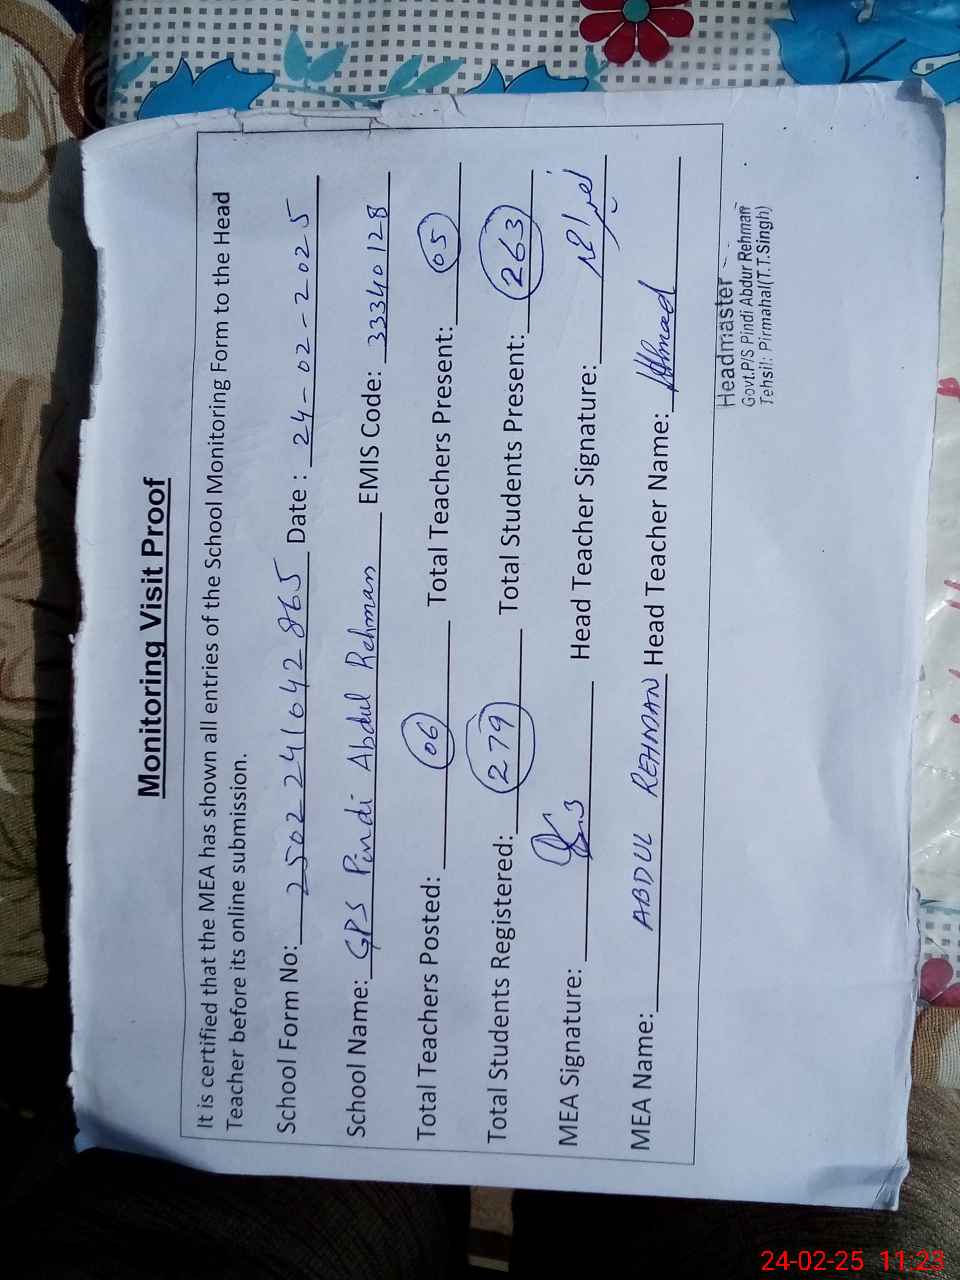 Monitoring Visit Proof
It is certified that the MEA has shown all entries of the School Monitoring Form to the Head
Teacher before its online submission.
School Form No: 2502241642865 Date : 24-02-2025
School Name: GPS Pindi Abdul Rehman EMIS Code: 33340128
Total Teachers Posted: 06 Total Teachers Present: 05
Total Students Registered: 279 Total Students Present: 263
MEA Signature: Head Teacher Signature:
MEA Name: ABDUL REHMAN Head Teacher Name: Ahmad
Headmaster
Govt.P/S Pindi Abdur Rehman
Tehsil: Pirmahal(T.T.Singh)
24-02-25 11:23